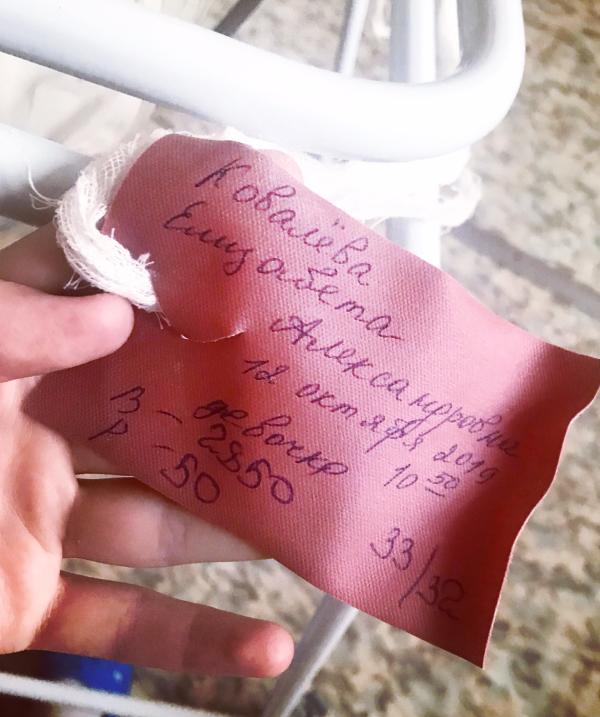 Ковалёва
Елизавета
Александровна
12 октября 2019
девочка 10 50
В - 2850
Р - 50
33/32